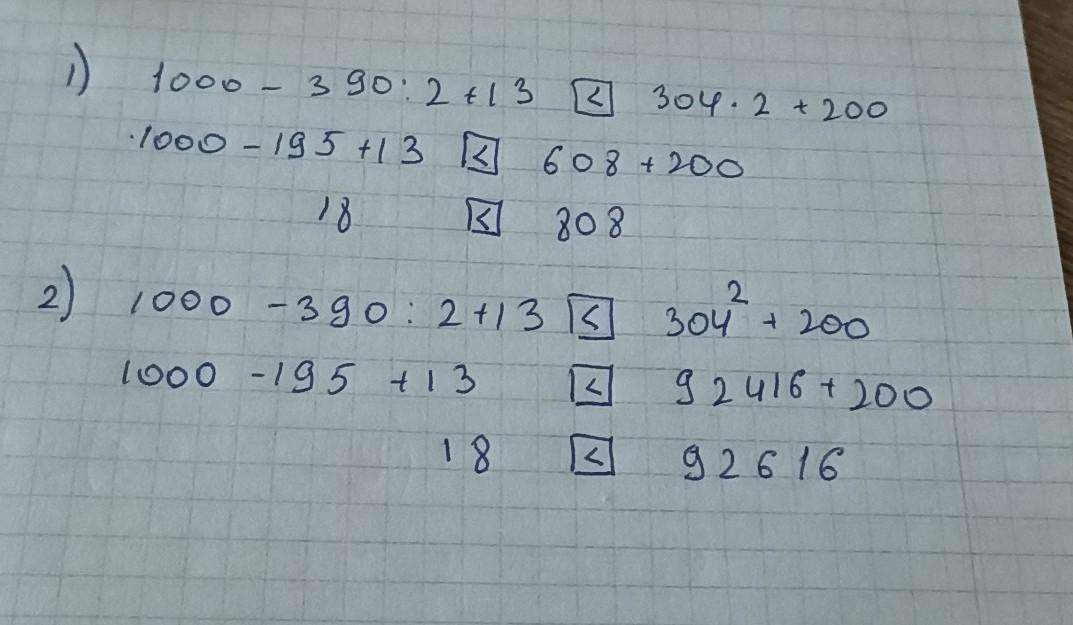 1) 1000 - 390 : 2 + 13 < 304 · 2 + 200
1000 - 195 + 13 < 608 + 200
18 < 808
2) 1000 - 390 : 2 + 13 < 304² + 200
1000 - 195 + 13 < 92416 + 200
18 < 92616